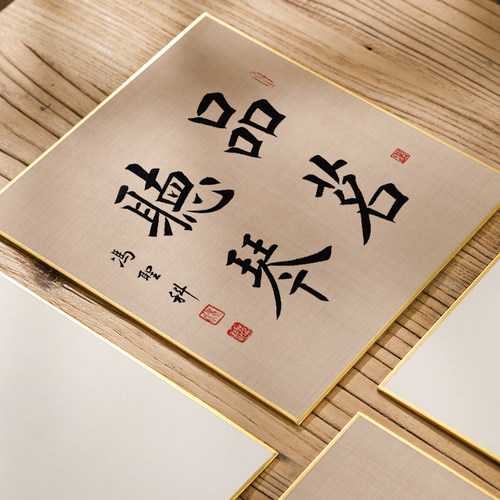 品茗
聽琴
馮聖科